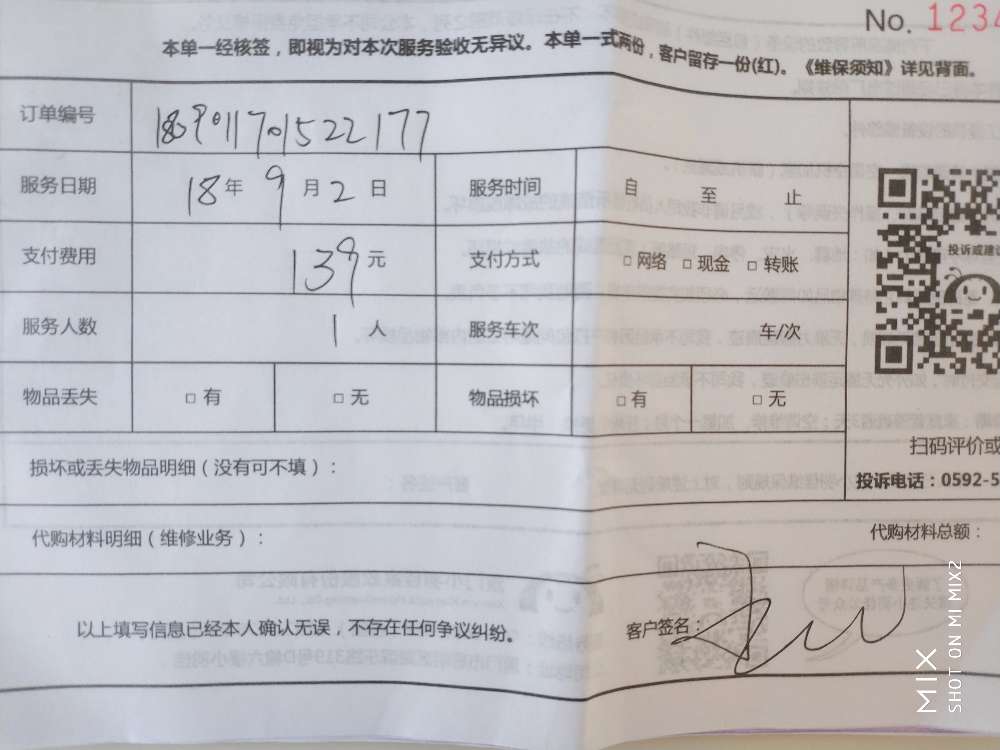 No. 1234
本单一经核签，即视为对本次服务验收无异议。本单一式两份，客户留存一份(红)。《维保须知》详见背面。
订单编号 189011701522177
服务日期 18年9月2日 服务时间 自 至 止
支付费用 139元 支付方式 □网络 □现金 □转账
投诉或建议
服务人数 1人 服务车次 车/次
物品丢失 □有 □无 物品损坏 □有 □无
扫码评价或
损坏或丢失物品明细（没有可不填）：
投诉电话：0592-5
代购材料明细（维修业务）：
代购材料总额：
以上填写信息已经本人确认无误，不存在任何争议纠纷。
客户签名：
MIX
SHOT ON MI MIX2